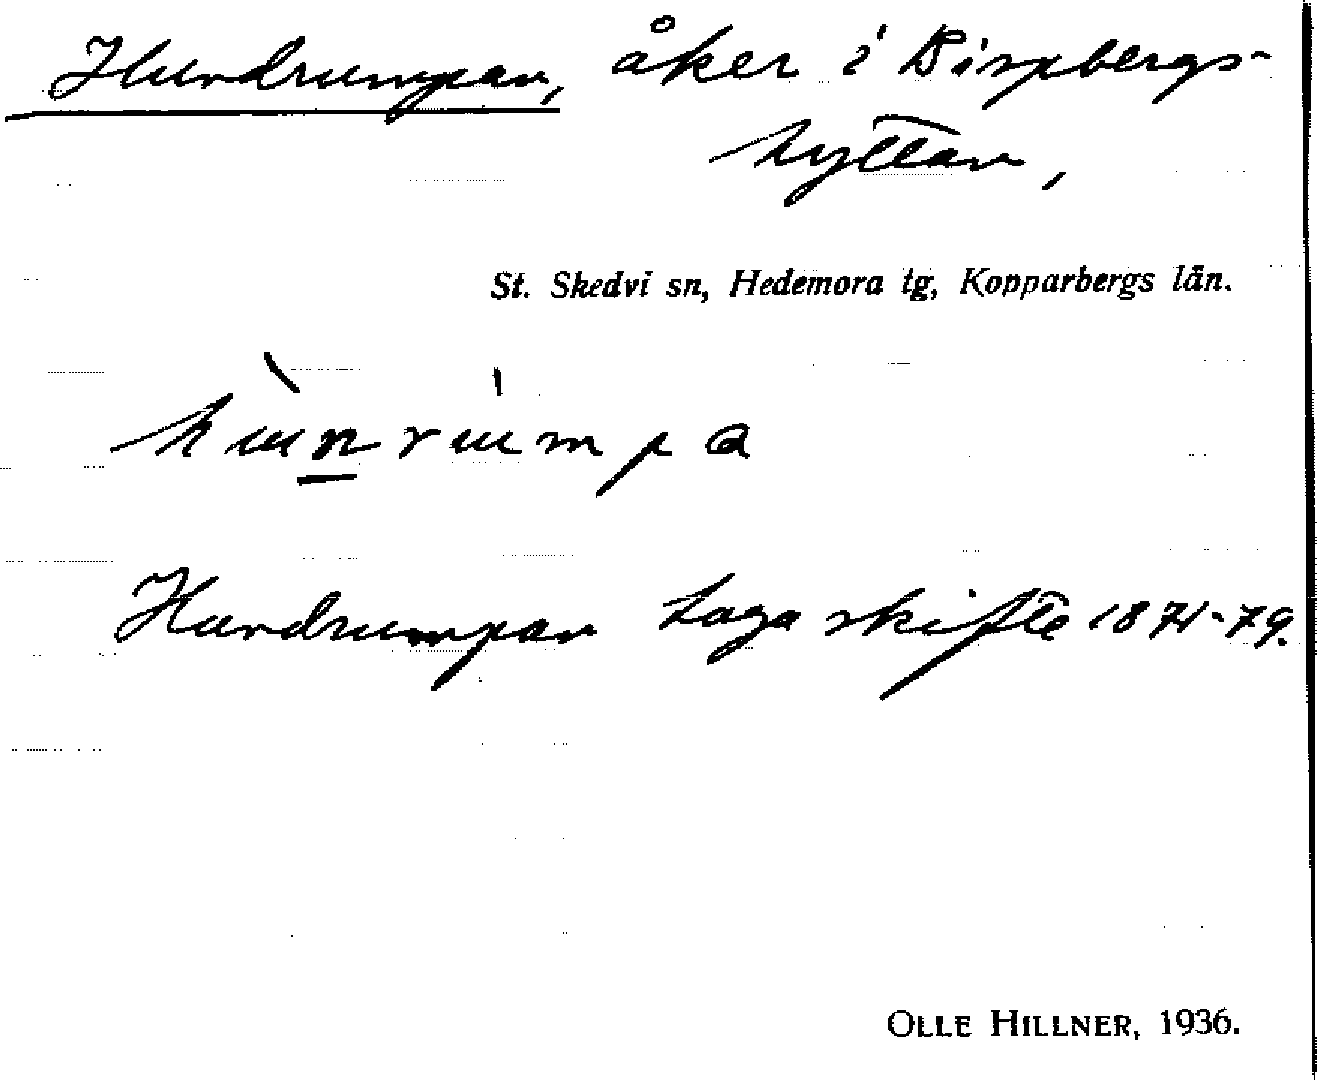 Hundrumpan, åker i Bispbergs-
hyttan,
St. Skedvi sn, Hedemora tg, Kopparbergs län.
hùnrùmpa
Hundrumpan Laga skifte 1871-79.
OLLE HILLNER, 1936.